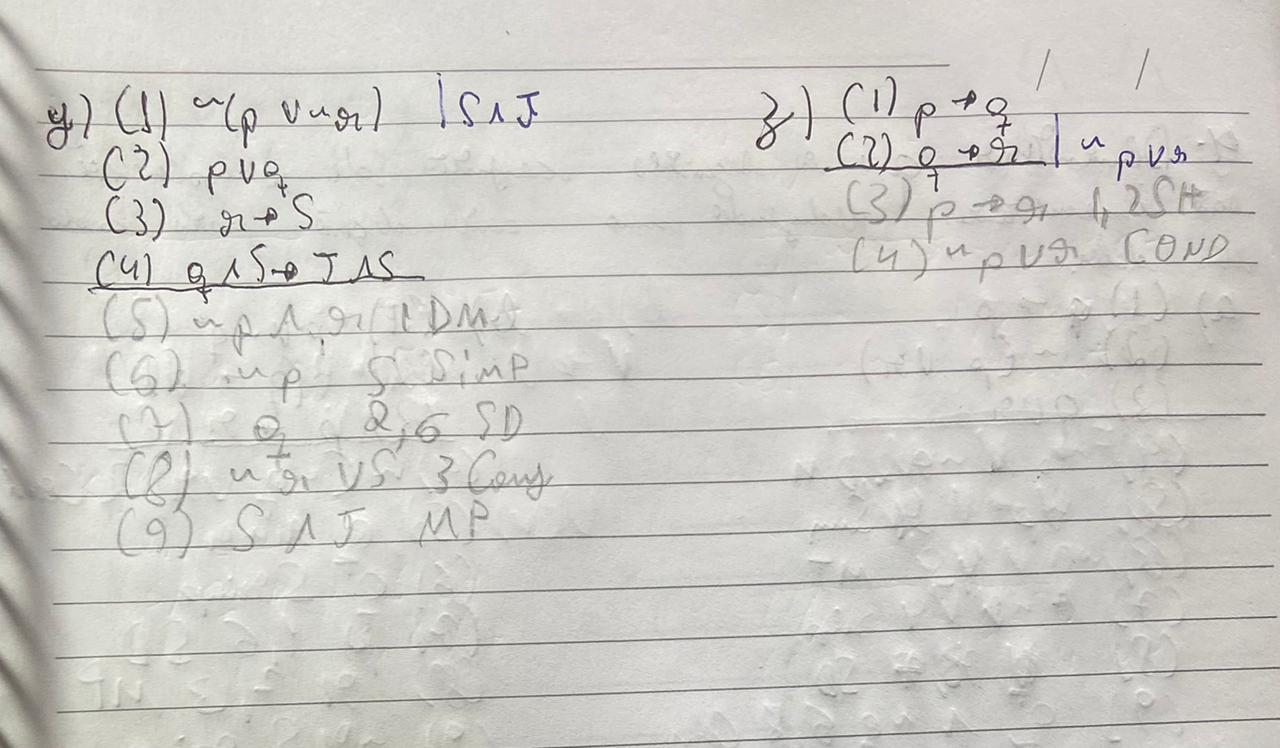 y) (1) ~(p ∨ ~r) | S ∧ J
(2) p ∨ q
(3) r → S
(4) q ∧ S → J ∧ S
(5) ~p ∧ r 1 DM
(6) ~p 5 SiMP
(7) q 2,6 SD
(8) ~r ∨ S 3 Cond
(9) S ∧ J MP
z) (1) p → q
(2) q → r | ~p ∨ r
(3) p → r 1,2 SH
(4) ~p ∨ r COND